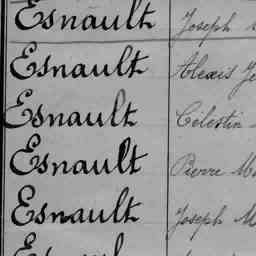 Esnault Joseph
Esnault Alexis
Esnault Célestin
Esnault Pierre
Esnault Joseph